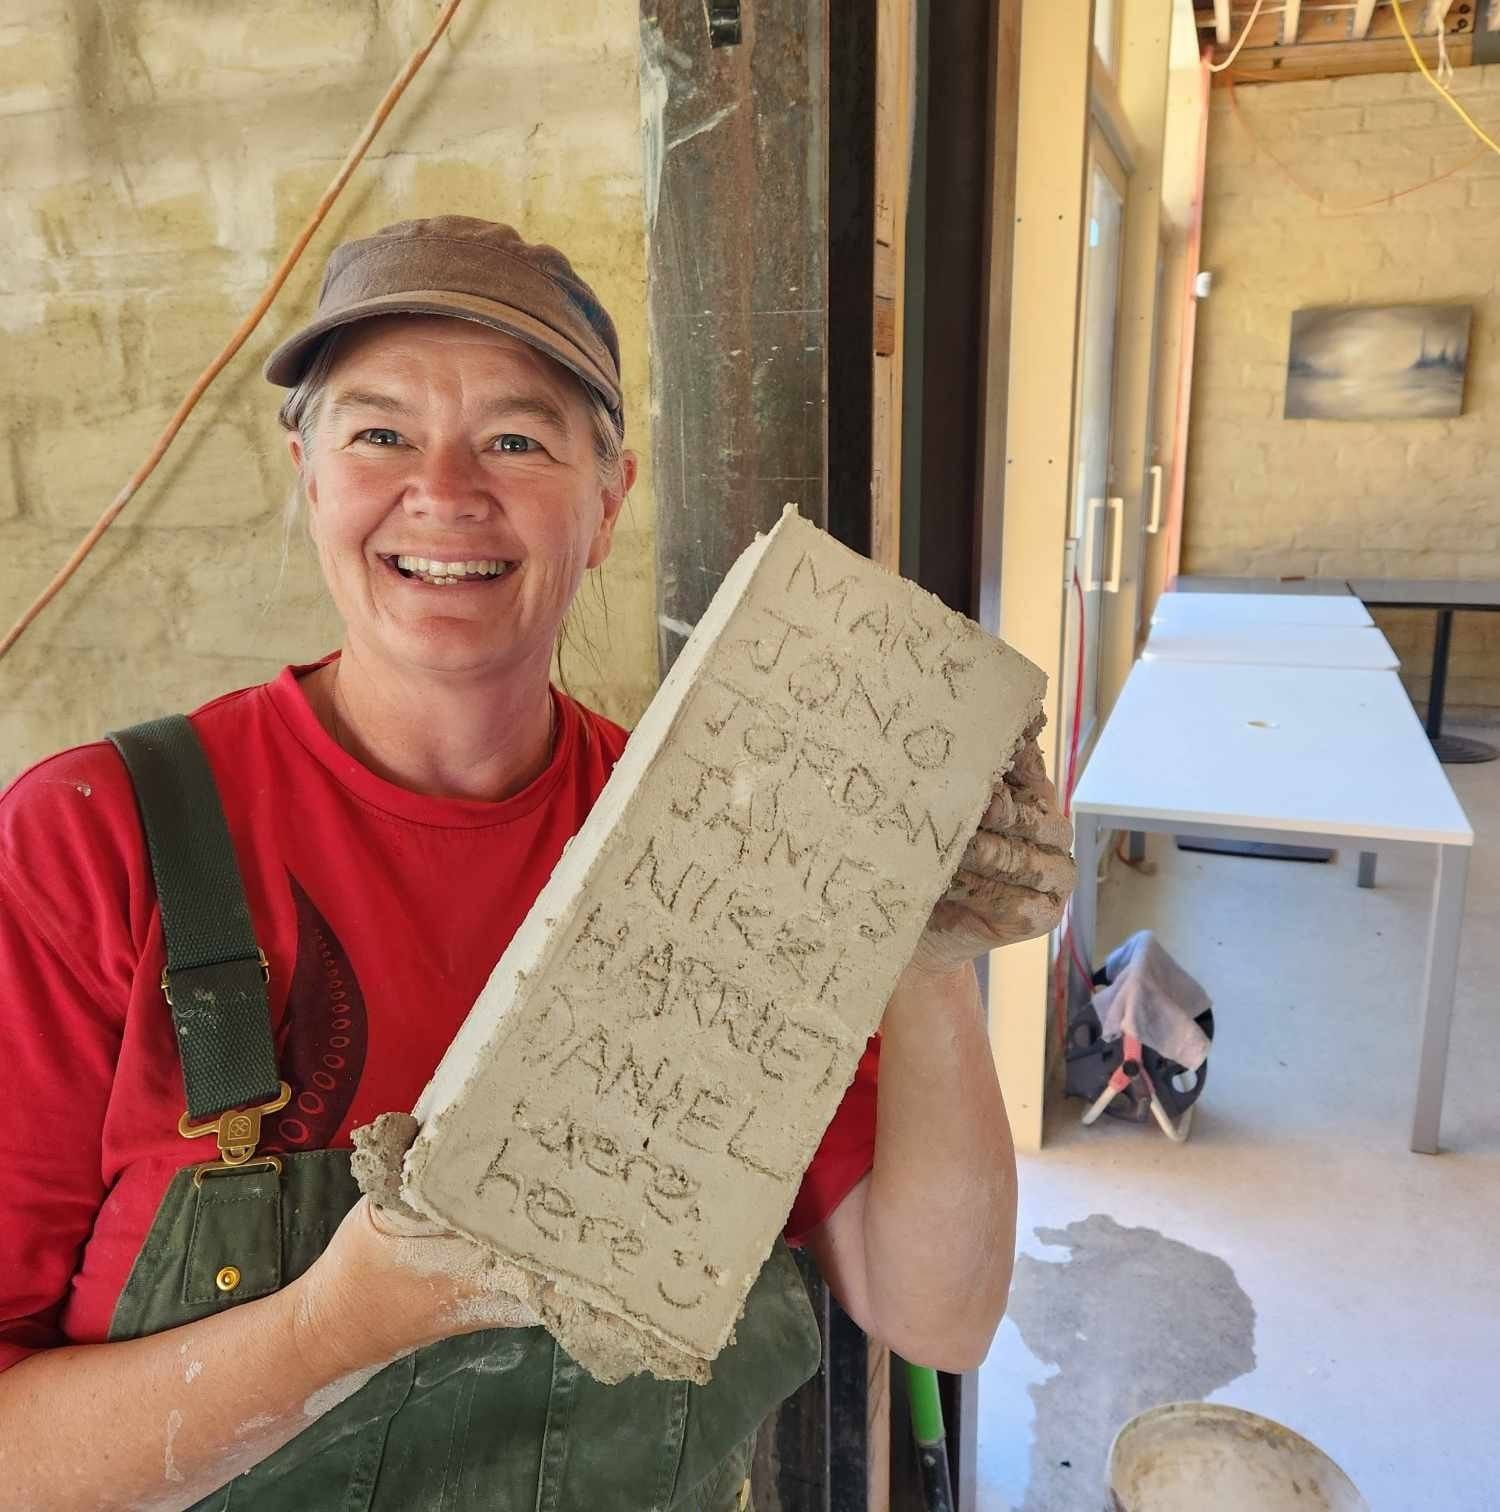 MARK
JONO
JORDAN
JAMES
NIRAL
HARRIET
DANIEL
were
here :)